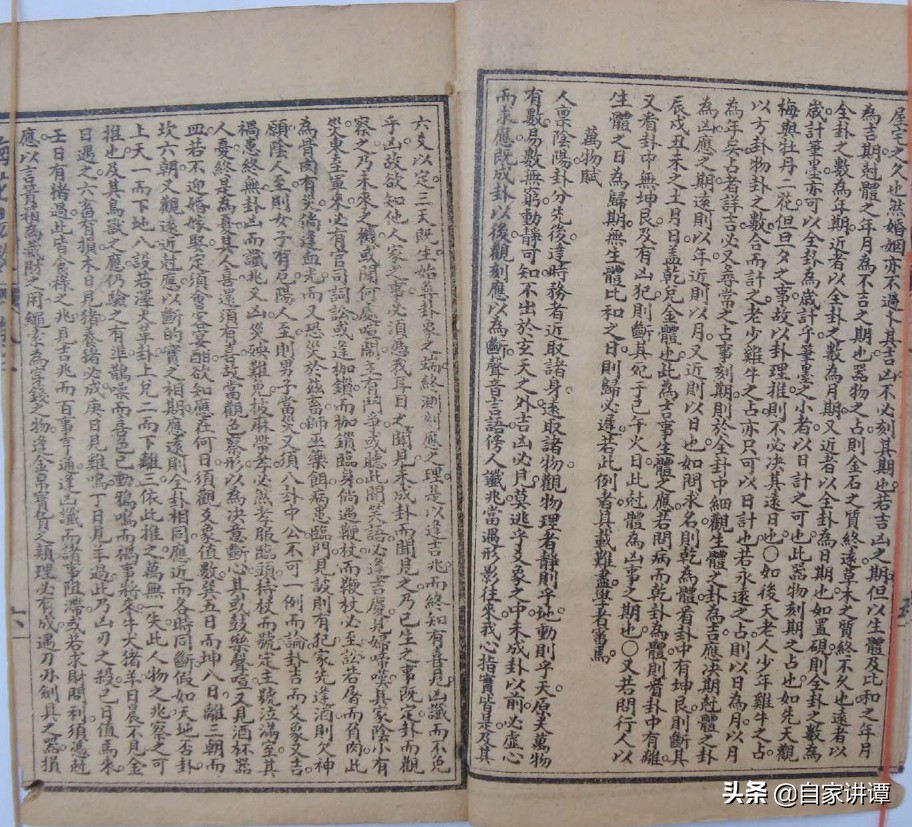 屋宅之久也然婚姻亦不過卜其吉凶不必刻其期也若吉凶之期但以生體及比和之年月
為吉期尅體之年月為不吉之期也器物之占則金石之質終遠草木之質終不久也遠者以
全卦之數為年期近者以全卦之數為月期又近者以全卦為日期也如置硯則全卦之數為
歲計筆墨亦可以全卦為歲計乎筆墨之小者以日計之可也此器物刻期之占也如先天觀
梅與牡丹二花但旦夕之事故以卦理推則不必決其遠日也○如後天老人少年雞牛之占
以方卦物卦之數合而計之老少雞牛之占亦只可以日計也若永遠之占則以日為月以月
為年矣占者詳吉必又尋常之占事刻期則於全卦中細觀生體之卦為吉應決期尅體之卦
為凶應之期遠則以年近則以月又近則以日也如問求名則乾為體看卦中有坤艮則斷其
辰戌丑未之土月日日蓋乾兌金體也此為吉事生體之應若問病而乾卦為體則看卦中有離
又看卦中無坤艮及有凶犯則斷其死于巳午火日此尅體為凶事之期也○又若問行人以
生體之日為歸期無生體比和之日則歸必遲若此例者具載難盡學者審焉
萬物賦
人稟陰陽卦分先後達時務者近取諸身遠取諸物觀物理者靜則乎地動則乎天原夫萬物
有數易數無窮動靜可知不出於玄天之外吉凶必見莫逃乎爻象之中未成卦以前必虛心
而求應既成卦以後觀刻應以為斷聲音言語傍人讖兆當遇形影往來我心指實皆是及其
六爻以定三天既生始尋卦象之端終測刻應之理是以逢吉兆而終知有喜見凶讖而不免
乎凶故欲知他人家之事必須憑我耳目之聞見未成卦而聞見之乃已生之事既定卦而觀
察之乃未來之機或聞何處喧鬧主有鬥爭或聽此間笑語必逢吉慶見婦啼嘆其家陰小有
災東至軍來必有官司詞訟或逢枷鎖而枷鎖臨身倘遇鞭杖而鞭杖必至訟若屠而負肉此
為骨肉有災倘逢血光而又恐災於茲畜師巫藥餌病患臨門見設則有犯家先逢酒則欠神
願陰人至則女子有厄陽人至則男子當災又須八卦中公不可一例而論卦吉而爻象又吉
禍患終無卦凶而讖兆又凶災殃難免披麻帶孝必然孝服臨頭持杖而號定主號泣滿室其
人憂終是為憂其人喜還須有喜故當觀色察形以為決意斷心其或鼓樂聲喧又見酒杯器
皿若不迎婚嫁娶定須會客宴酣欲知應在何日須觀爻象值數巽五日而坤八日離三朝而
坎六朝又觀遠近尅應以斷的實之相期應遠則全卦相同應近而各時同斷假如天地否卦
上天一而下地八設若澤火革卦上兌二而下離三依此推之萬無一失此人物之兆察之可
推也及其鳥獸之應仍驗之有準鵲噪而喜色已動鴉鳴而禍事將來牛犬猪羊日晨不見金
日遇之六畜有損木日見猪養猪必成庚日見雞鳴丁日見羊過此乃凶刃之殺己日值馬來
壬日有猪過此皆食祿之兆見吉兆而百事亨通逢凶讖而諸事阻滯或若求財問利須憑尅
應以言著箱為藏財之用繩索為穿錢之物逢金帛寶貨之類理必有成遇刀刃劍具之器損
头条 @自家讲谭